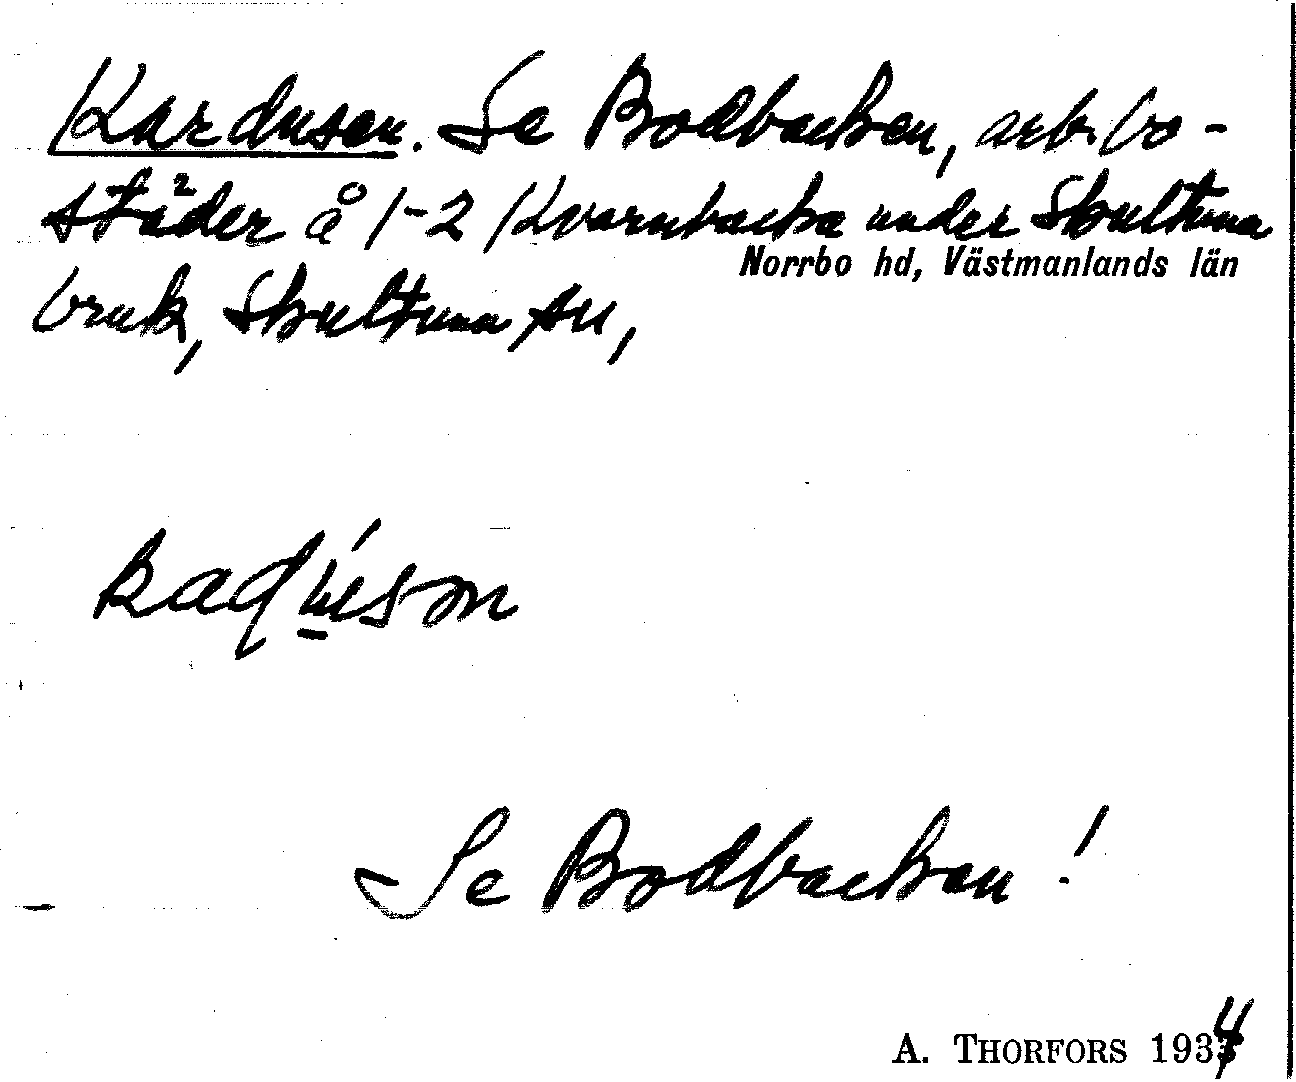 Kardusen. Se Bodbacken, arb. bo-
städer å 1-2 Kvarnbacka under Skultuna
Norrbo hd, Västmanlands län
bruk, Skultuna sn,
Se Bodbacken!
A. THORFORS 1934